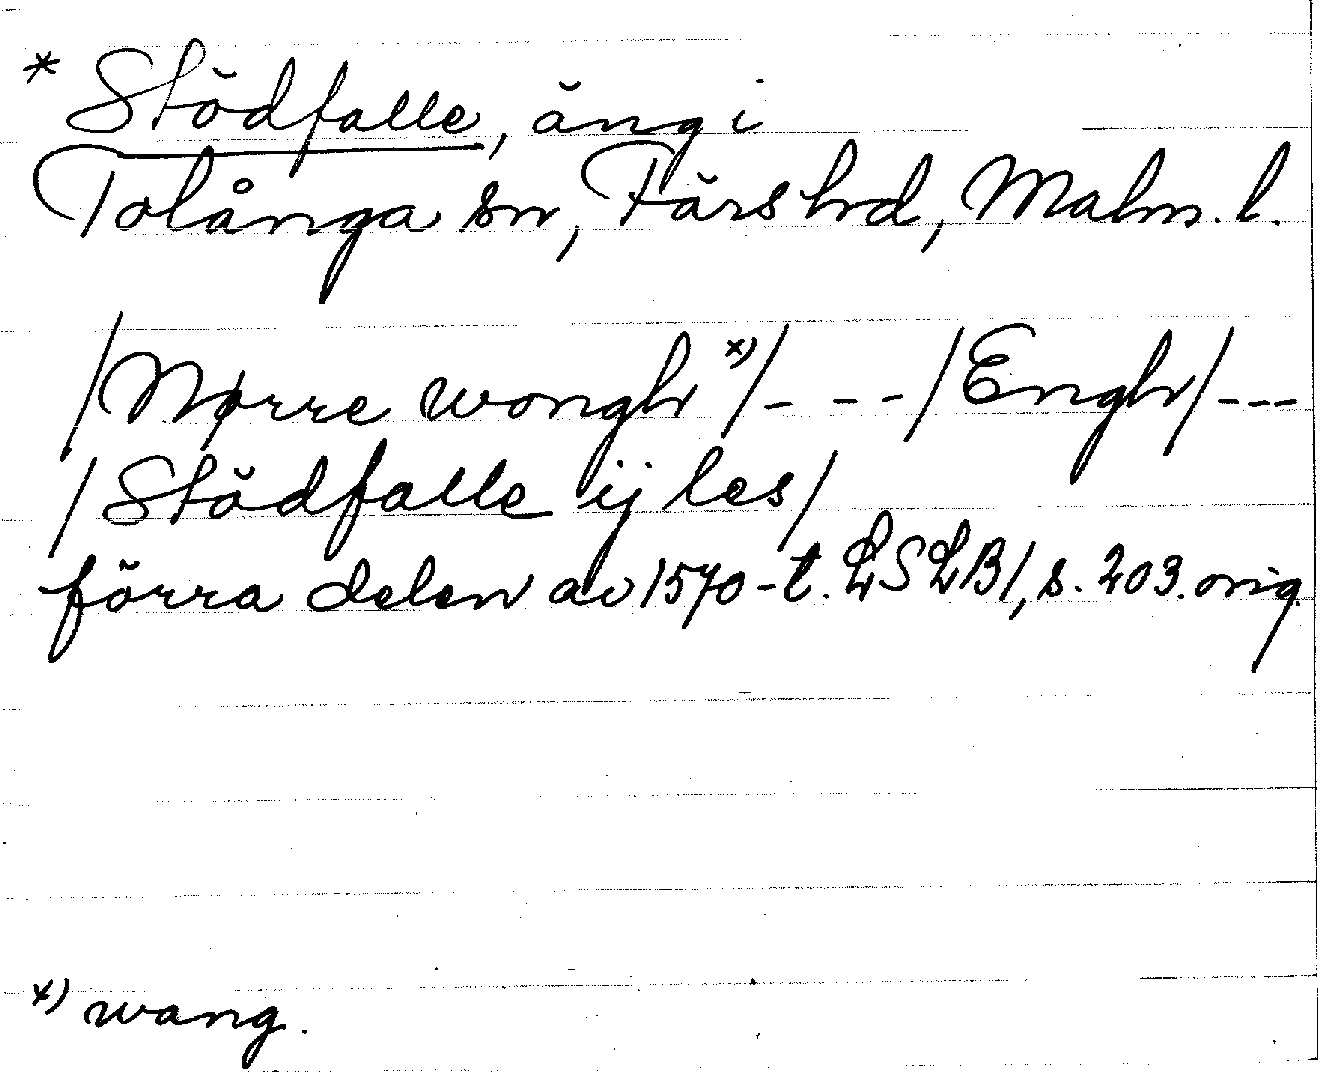 * Stödfalle, äng i
Tolånga sn, Färs hd, Malm. l.
/Nørre wongh x)/- - -/Engh/---
/Stödfalle ij les/
förra delen av 1570-t. LSLB1, s. 203. orig.
x) wang.